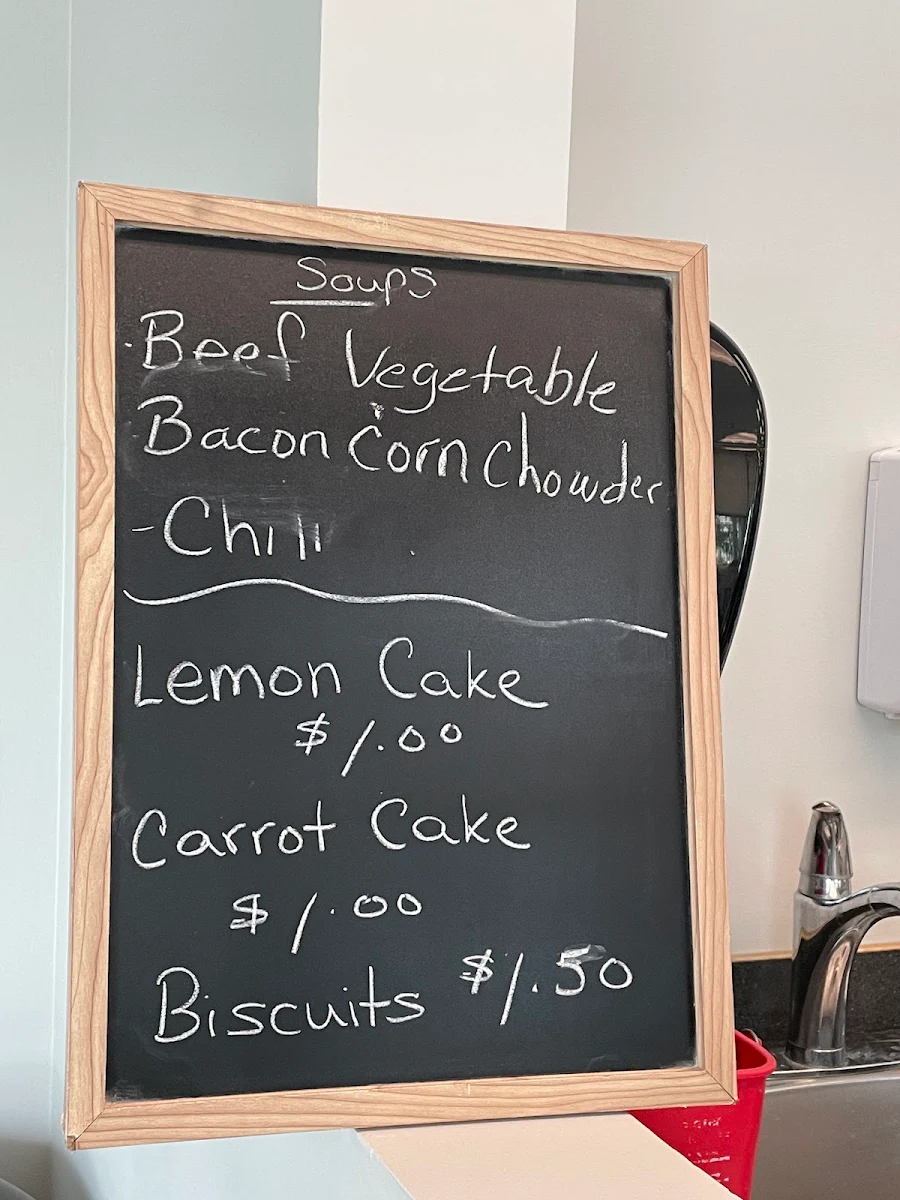 Soups
·Beef Vegetable
Bacon Corn Chowder
-Chili
Lemon Cake
$1.00
Carrot Cake
$1.00
Biscuits $1.50